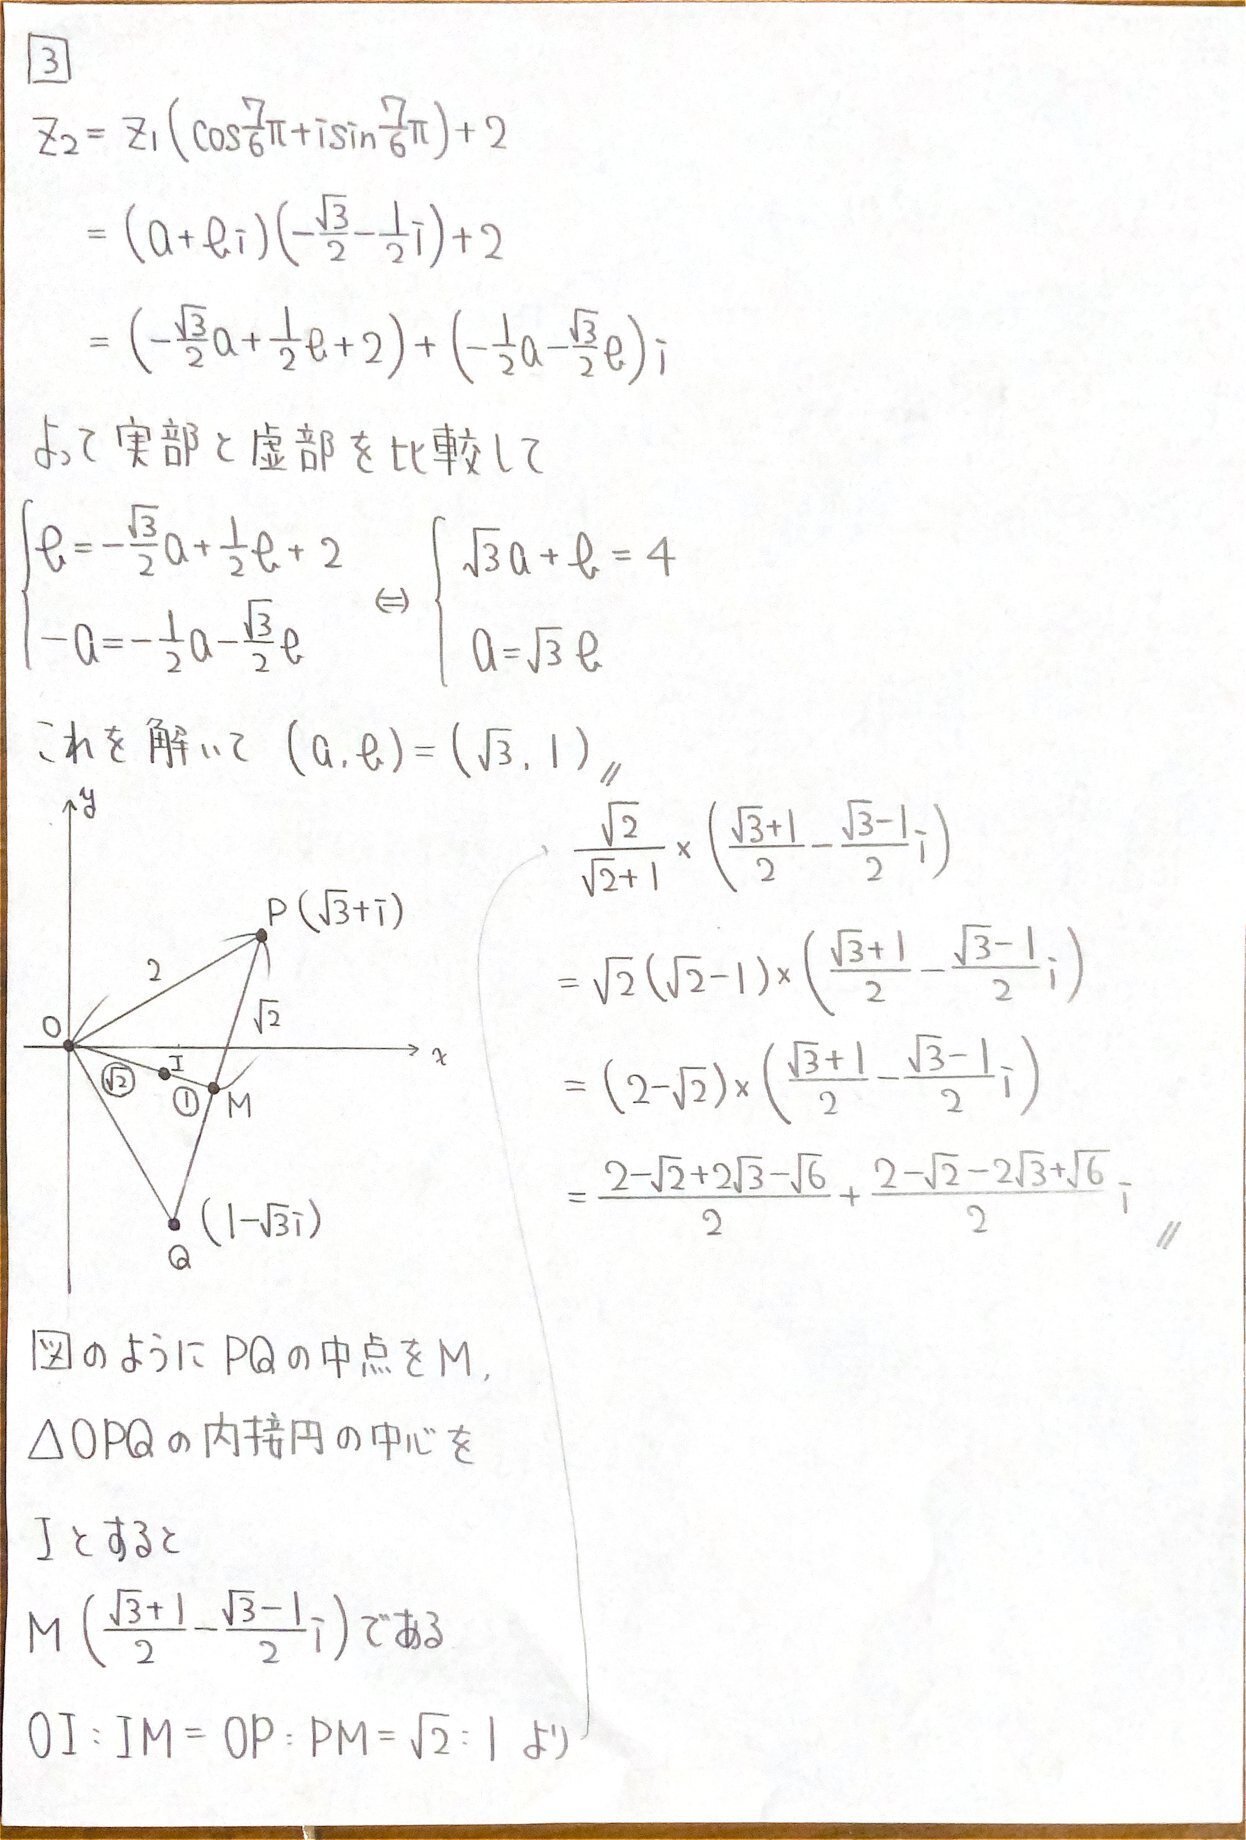 3
z₂ = z₁(cos 7/6 π + i sin 7/6 π) + 2
= (a + bi)(-√3/2 - 1/2 i) + 2
= (-√3/2 a + 1/2 b + 2) + (-1/2 a - √3/2 b)i
よって実部と虚部を比較して
{ b = -√3/2 a + 1/2 b + 2 ⇔ { √3a + b = 4
-a = -1/2 a - √3/2 b a = √3 b
これを解いて (a, b) = (√3, 1) //
y
P(√3+i)
2
√2
O
x
I
√2
1
M
(1-√3i)
Q
図のようにPQの中点をM,
△OPQの内接円の中心を
Iとすると
M((√3+1)/2 - (√3-1)/2 i)である
OI : IM = OP : PM = √2 : 1 より
√2/(√2+1) × ((√3+1)/2 - (√3-1)/2 i)
= √2(√2-1) × ((√3+1)/2 - (√3-1)/2 i)
= (2-√2) × ((√3+1)/2 - (√3-1)/2 i)
= (2-√2+2√3-√6)/2 + (2-√2-2√3+√6)/2 i //